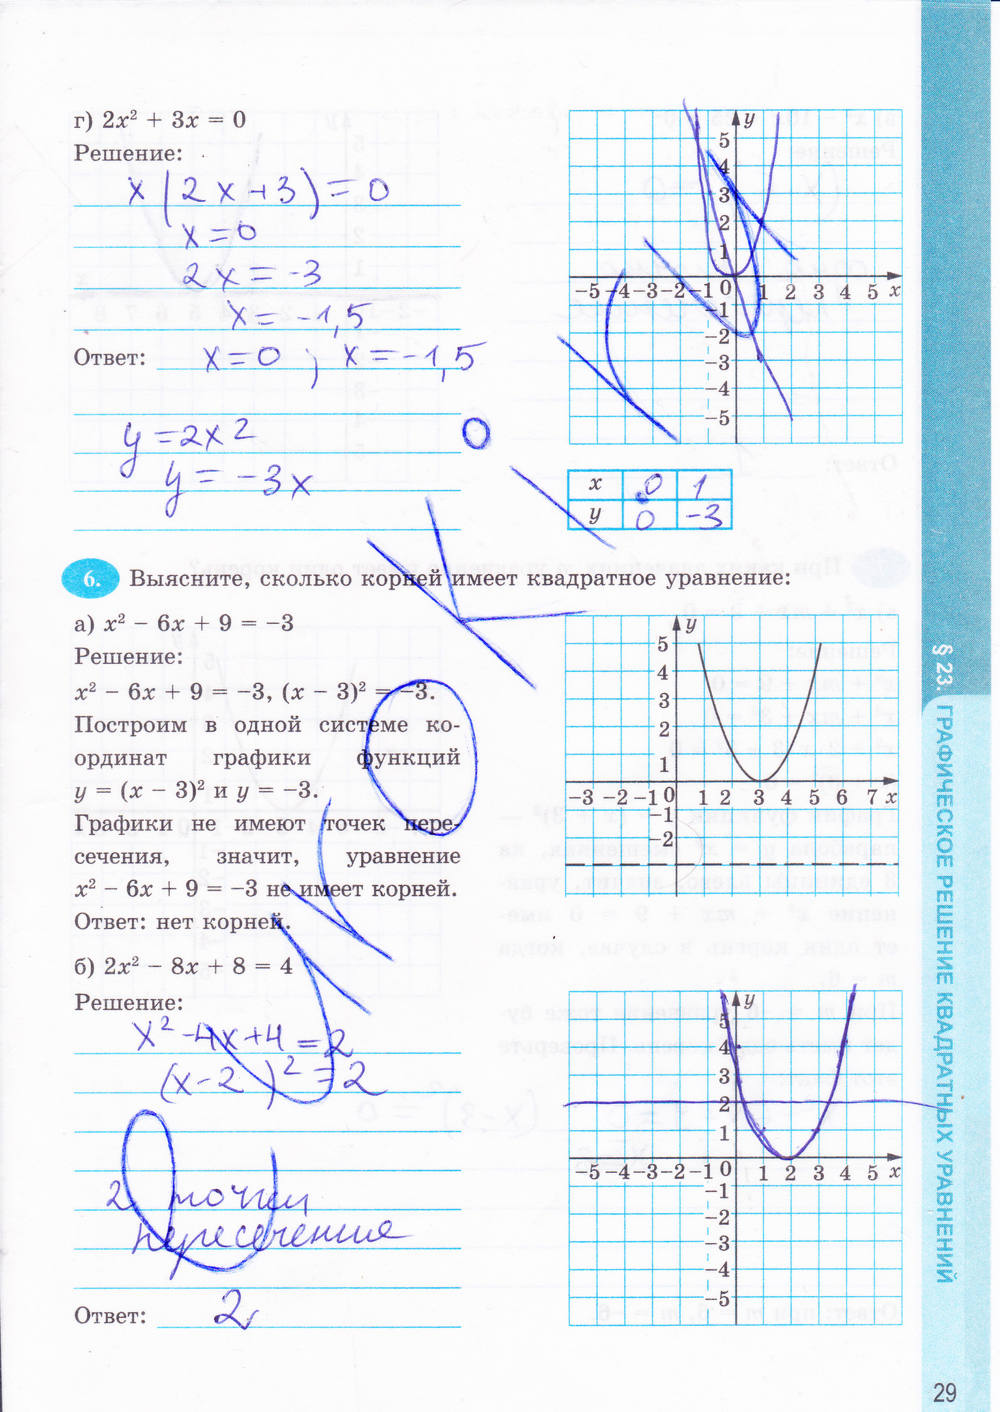 г) 2x² + 3x = 0
Решение:
x(2x+3)=0
x=0
2x=-3
x=-1,5
Ответ: x=0; x=-1,5
y=2x²
y=-3x
y
5
4
3
2
1
-5 -4 -3 -2 -1 0 1 2 3 4 5 x
-1
-2
-3
-4
-5
x 0 1
y 0 -3
6. Выясните, сколько корней имеет квадратное уравнение:
а) x² − 6x + 9 = −3
Решение:
x² − 6x + 9 = −3, (x − 3)² = −3.
Построим в одной системе ко-
ординат графики функций
y = (x − 3)² и y = −3.
Графики не имеют точек пере-
сечения, значит, уравнение
x² − 6x + 9 = −3 не имеет корней.
Ответ: нет корней.
y
5
4
3
2
1
-3 -2 -1 0 1 2 3 4 5 6 7 x
-1
-2
б) 2x² − 8x + 8 = 4
Решение:
x²-4x+4=2
(x-2)²=2
2 точки
пересечения
Ответ: 2
y
5
4
3
2
1
-5 -4 -3 -2 -1 0 1 2 3 4 5 x
-1
-2
-3
-4
-5
§ 23. ГРАФИЧЕСКОЕ РЕШЕНИЕ КВАДРАТНЫХ УРАВНЕНИЙ
29